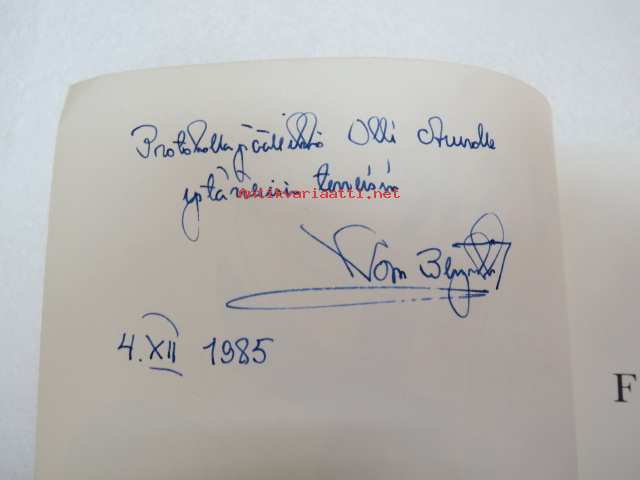 Protokollapäällikkö Olli Auvolle
ystävällisin terveisin
Antikvariaatti.net
Tom
4.XII 1985
F